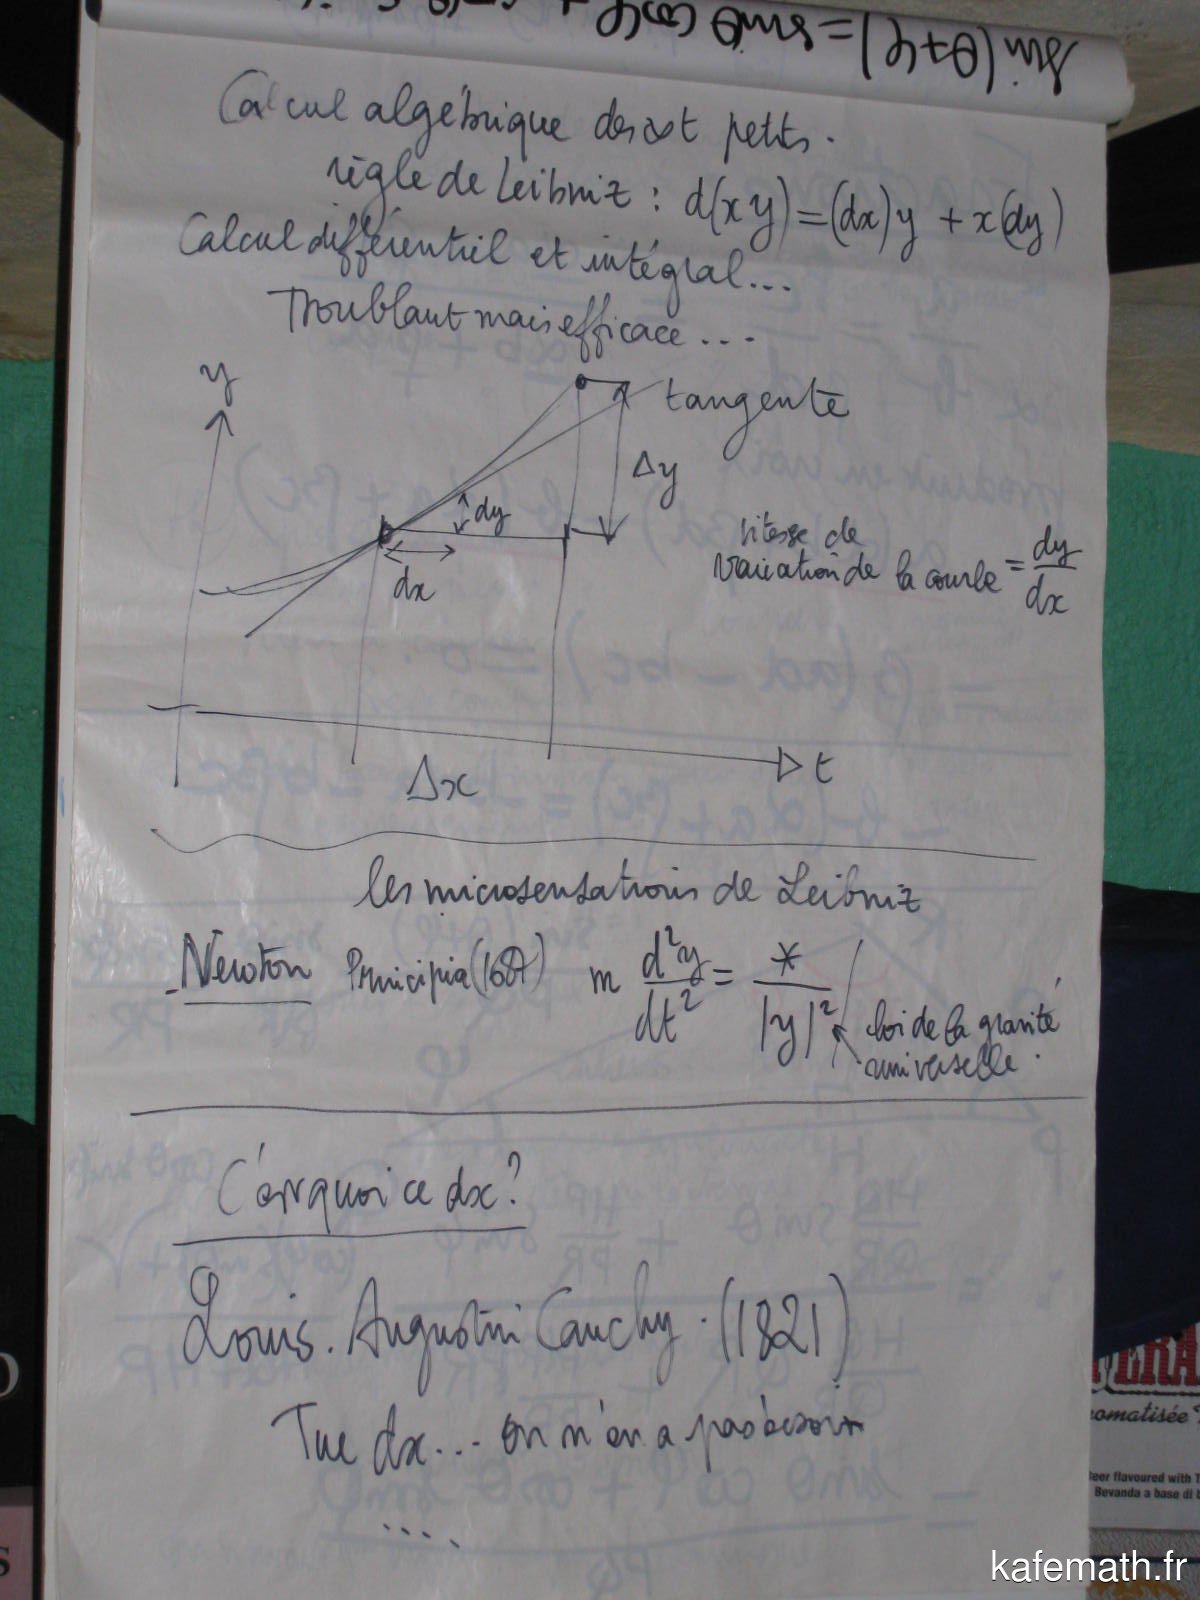 sin(θ+φ)=sinθ cosφ +
Calcul algébrique des ∞t petits.
règle de Leibniz : d(xy)=(dx)y + x(dy)
Calcul différentiel et intégral...
Troublant mais efficace ...
y
tangente
Δy
dy
dx
vitesse de
variation de la courbe = dy/dx
t
Δx
les microsensations de Leibniz
- Newton Principia (1687) m d²y/dt² = */|y|²
loi de la gravité
universelle.
C'est quoi ce dx?
Louis. Augustin Cauchy. (1821)
Tue dx... on n'en a pas besoin
....
ERA
romatisée
Beer flavoured with T
Bevanda a base di b
kafemath.fr